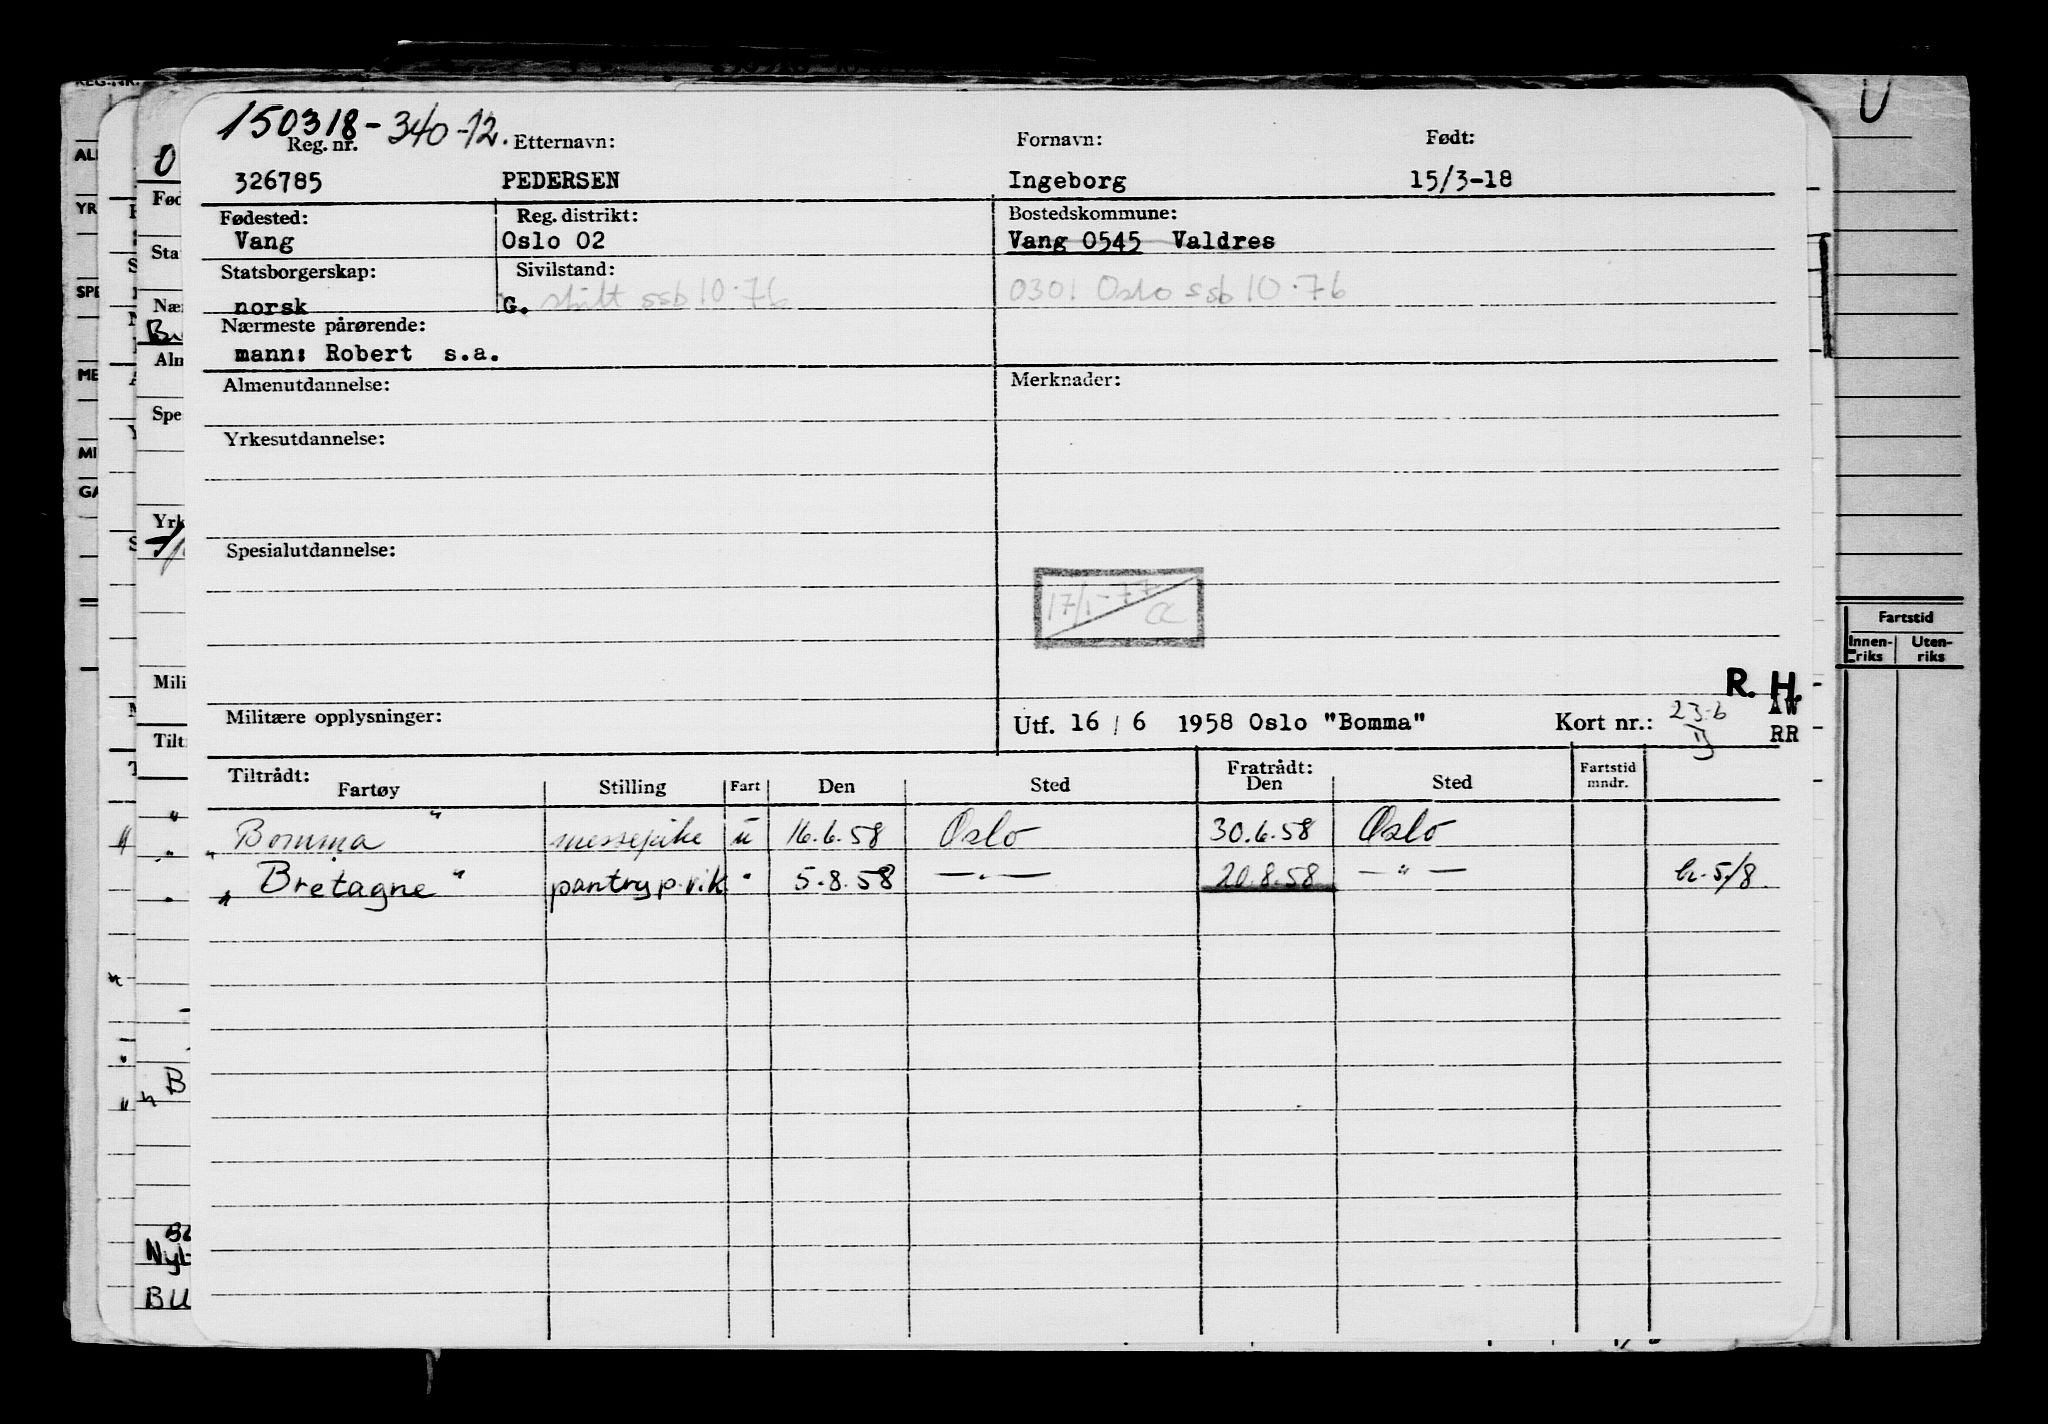 150318-340-12.
Reg. nr. Etternavn: Fornavn: Født:
326785 PEDERSEN Ingeborg 15/3-18
Fødested: Reg. distrikt: Bostedskommune:
Vang Oslo 02 Vang 0545 Valdres
Statsborgerskap: Sivilstand:
norsk G. skilt ssb 10.76 0301 Oslo ssb 10.76
Nærmeste pårørende:
mann: Robert s.a.
Almenutdannelse: Merknader:
Yrkesutdannelse:
Spesialutdannelse:
17/1-77
R. H.
Militære opplysninger: Utf. 16 / 6 1958 Oslo "Bomma" Kort nr.: 23.6 AW
RR
Tiltrådt: Fratrådt:
Fartøy Stilling Fart Den Sted Den Sted Fartstid mndr.
" Bomma " messepike u 16.6.58 Oslo 30.6.58 Oslo
" Bretagne " pantryp.vik " 5.8.58 — " — 20.8.58 — " — 5/8
Fartstid
Innenriks Utenriks